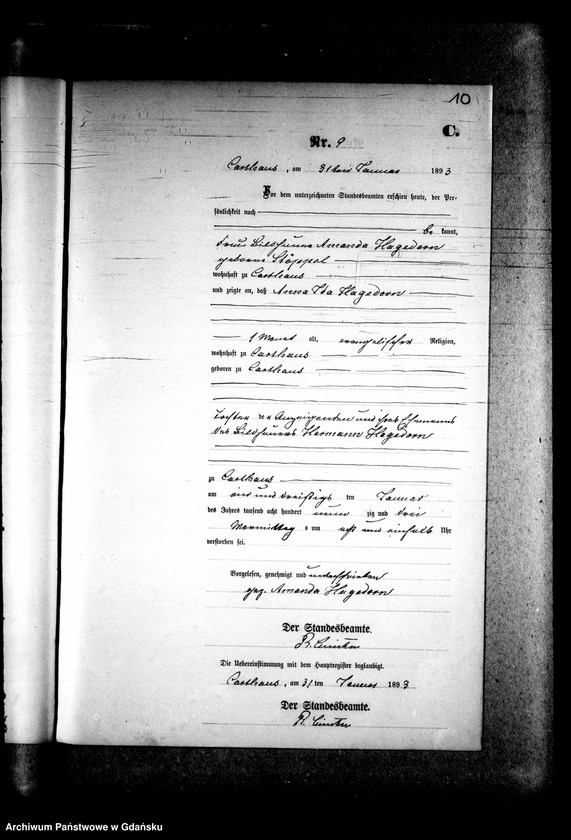 10
C.
Nr. 9
Carthaus, am 31ten Januar 1893
Vor dem unterzeichneten Standesbeamten erschien heute, der Per-
sönlichkeit nach
be kannt,
Frau Bildhauer Amanda Hagedorn
geborene
wohnhaft zu Carthaus
und zeigte an, daß Anna Ida Hagedorn
1 Monat alt, evangelischer Religion,
wohnhaft zu Carthaus
geboren zu Carthaus
Tochter der Anzeigenden und ihres Ehemanns
des Bildhauers Hermann Hagedorn
zu Carthaus
am ein und dreißigs ten Januar
des Jahres tausend acht hundert neun zig und drei
Vormittag s um acht und einhalb Uhr
verstorben sei.
Vorgelesen, genehmigt und unterschrieben
gez. Amanda Hagedorn
Der Standesbeamte.
Die Uebereinstimmung mit dem Hauptregister beglaubigt.
Carthaus, am 31 ten Januar 1893
Der Standesbeamte.
Archiwum Państwowe w Gdańsku